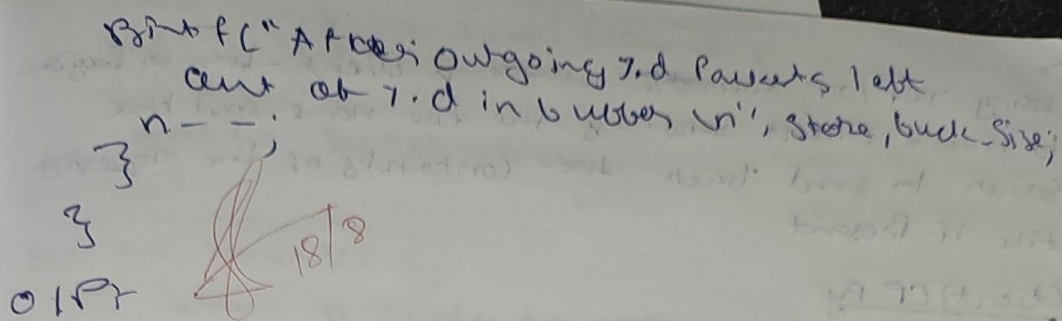 printf("After outgoing %d Packets left
out of %d in buffer \n", store, buck_size;
n--;
}
}
18/8
O/P: